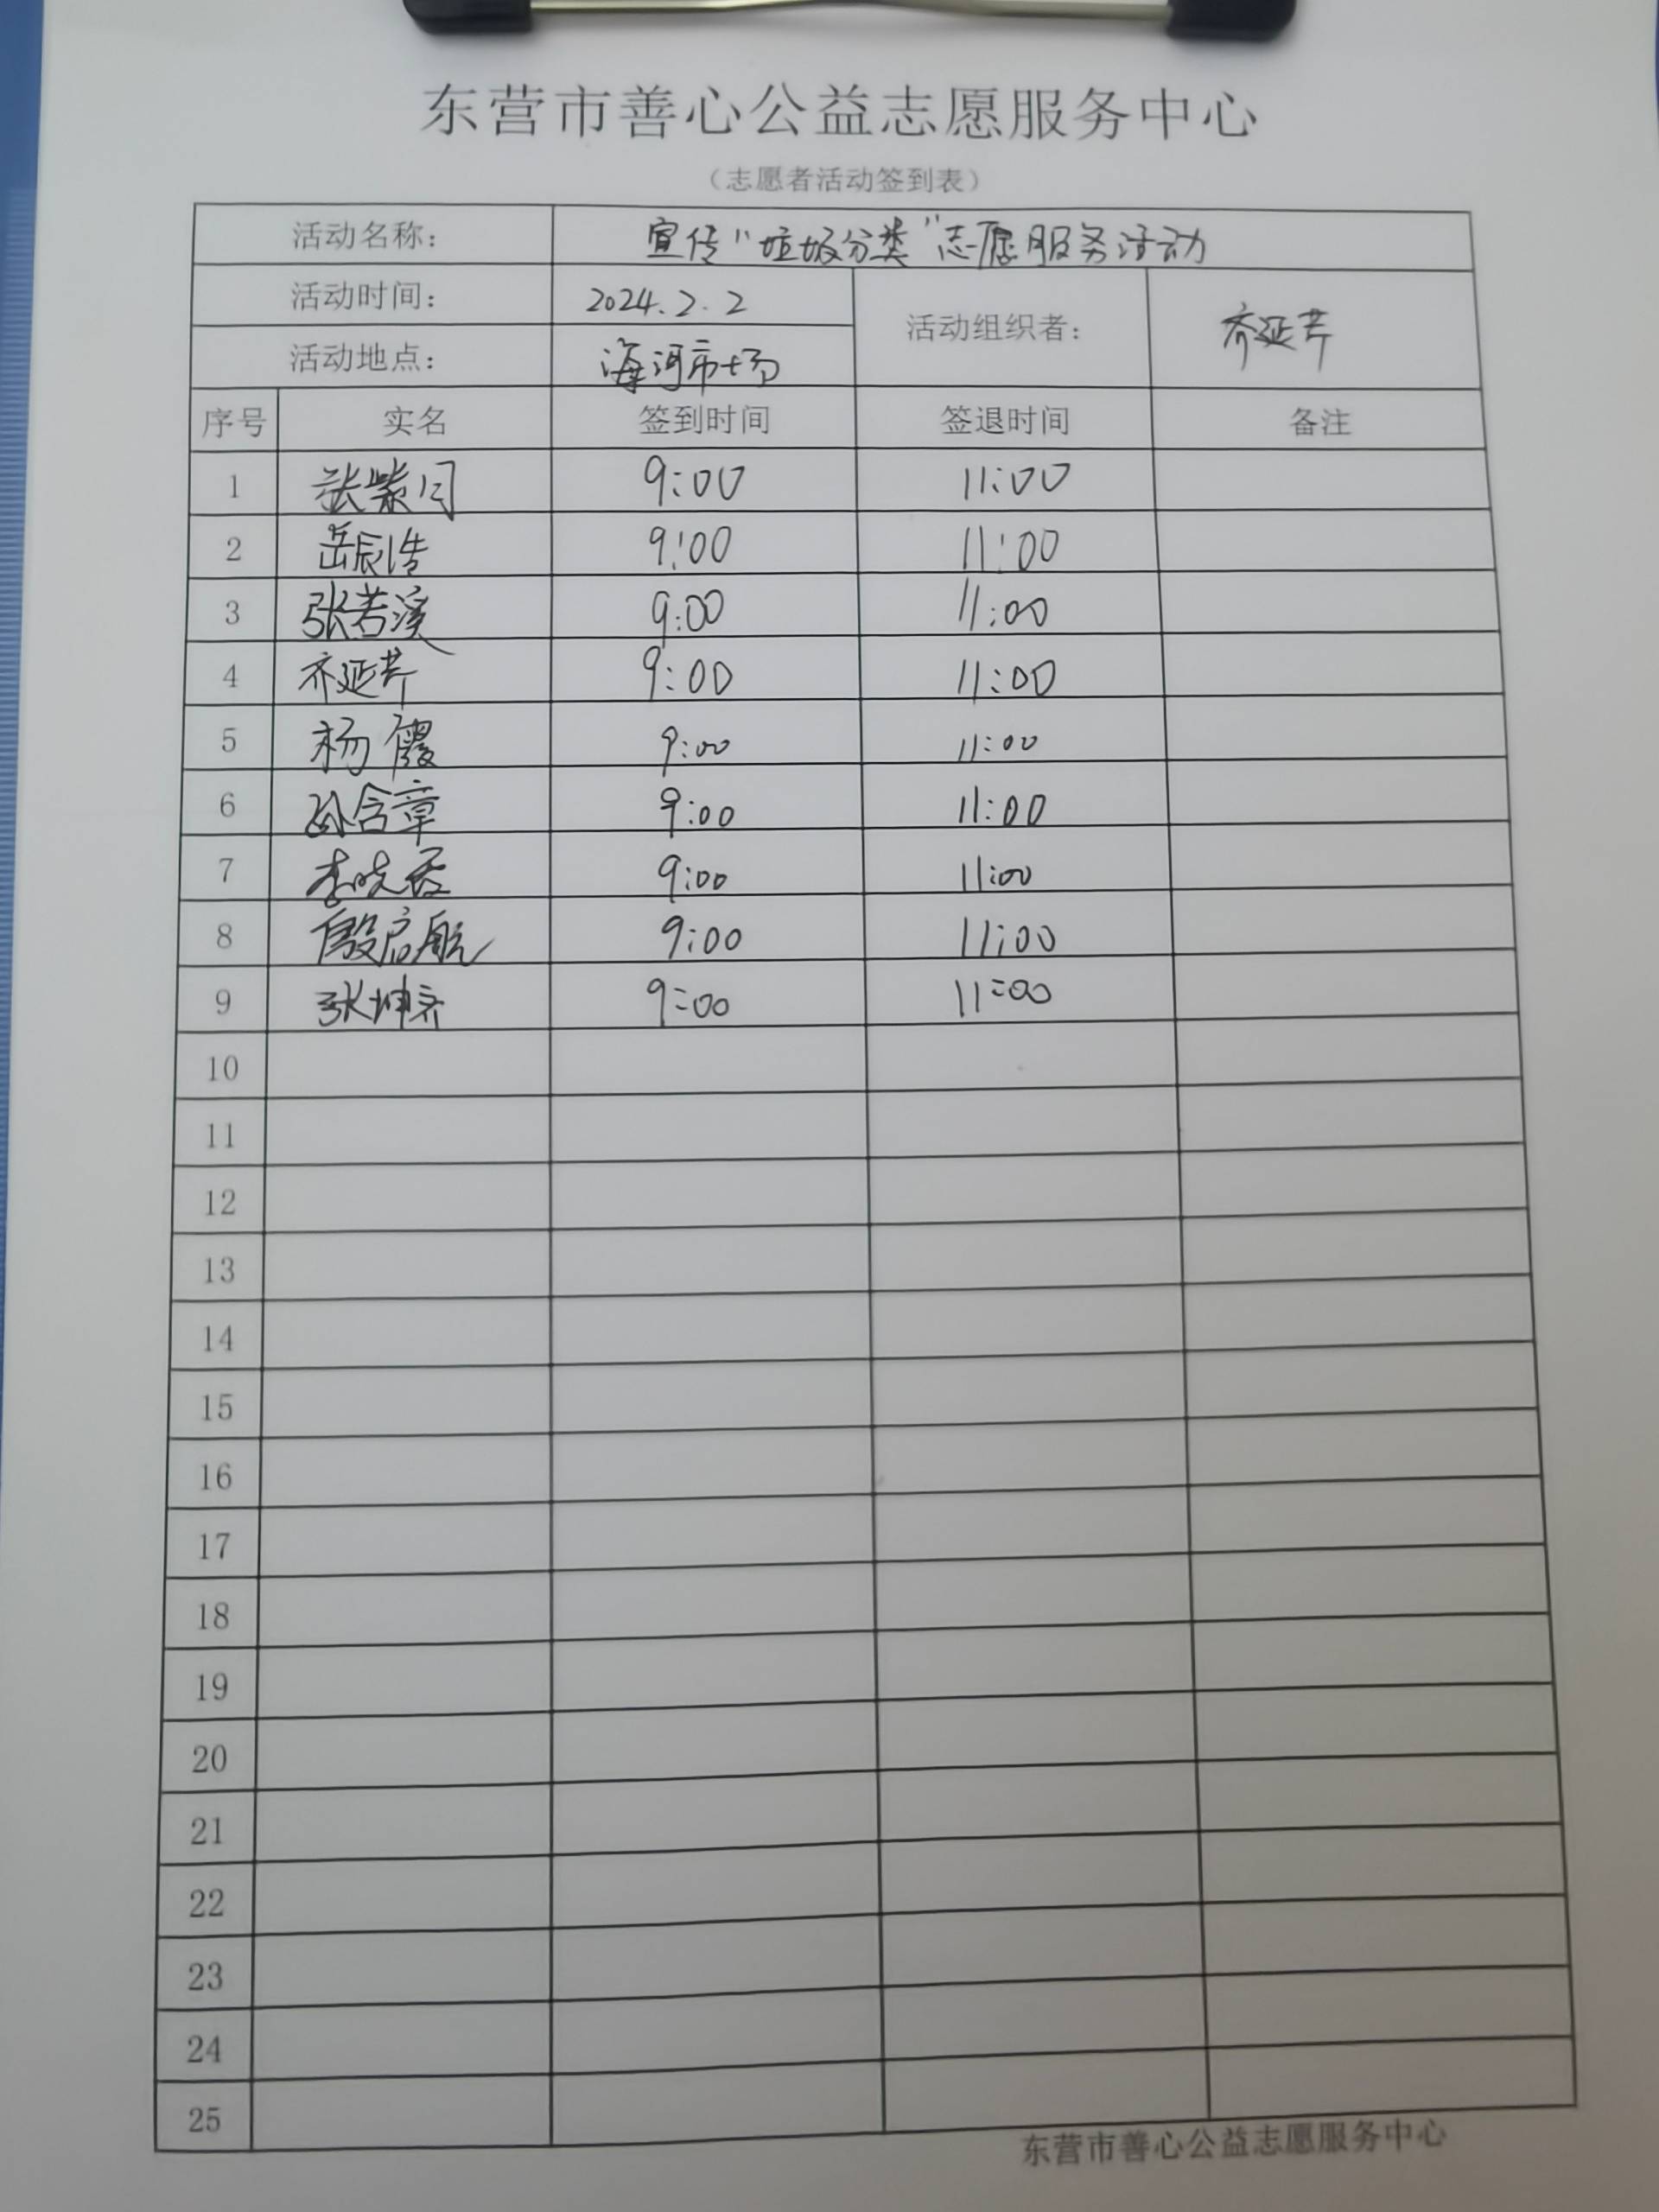 东营市善心公益志愿服务中心
（志愿者活动签到表）
活动名称： 宣传“垃圾分类”志愿服务活动
活动时间： 2024.2.2 活动组织者： 齐延芹
活动地点： 海河市场
序号 实名 签到时间 签退时间 备注
1 张紫月 9:00 11:00
2 岳辰浩 9:00 11:00
3 张若溪 9:00 11:00
4 齐延芹 9:00 11:00
5 杨霞 9:00 11:00
6 孙含章 9:00 11:00
7 李晓 9:00 11:00
8 殷启航 9:00 11:00
9 张坤齐 9:00 11:00
10
11
12
13
14
15
16
17
18
19
20
21
22
23
24
25
东营市善心公益志愿服务中心